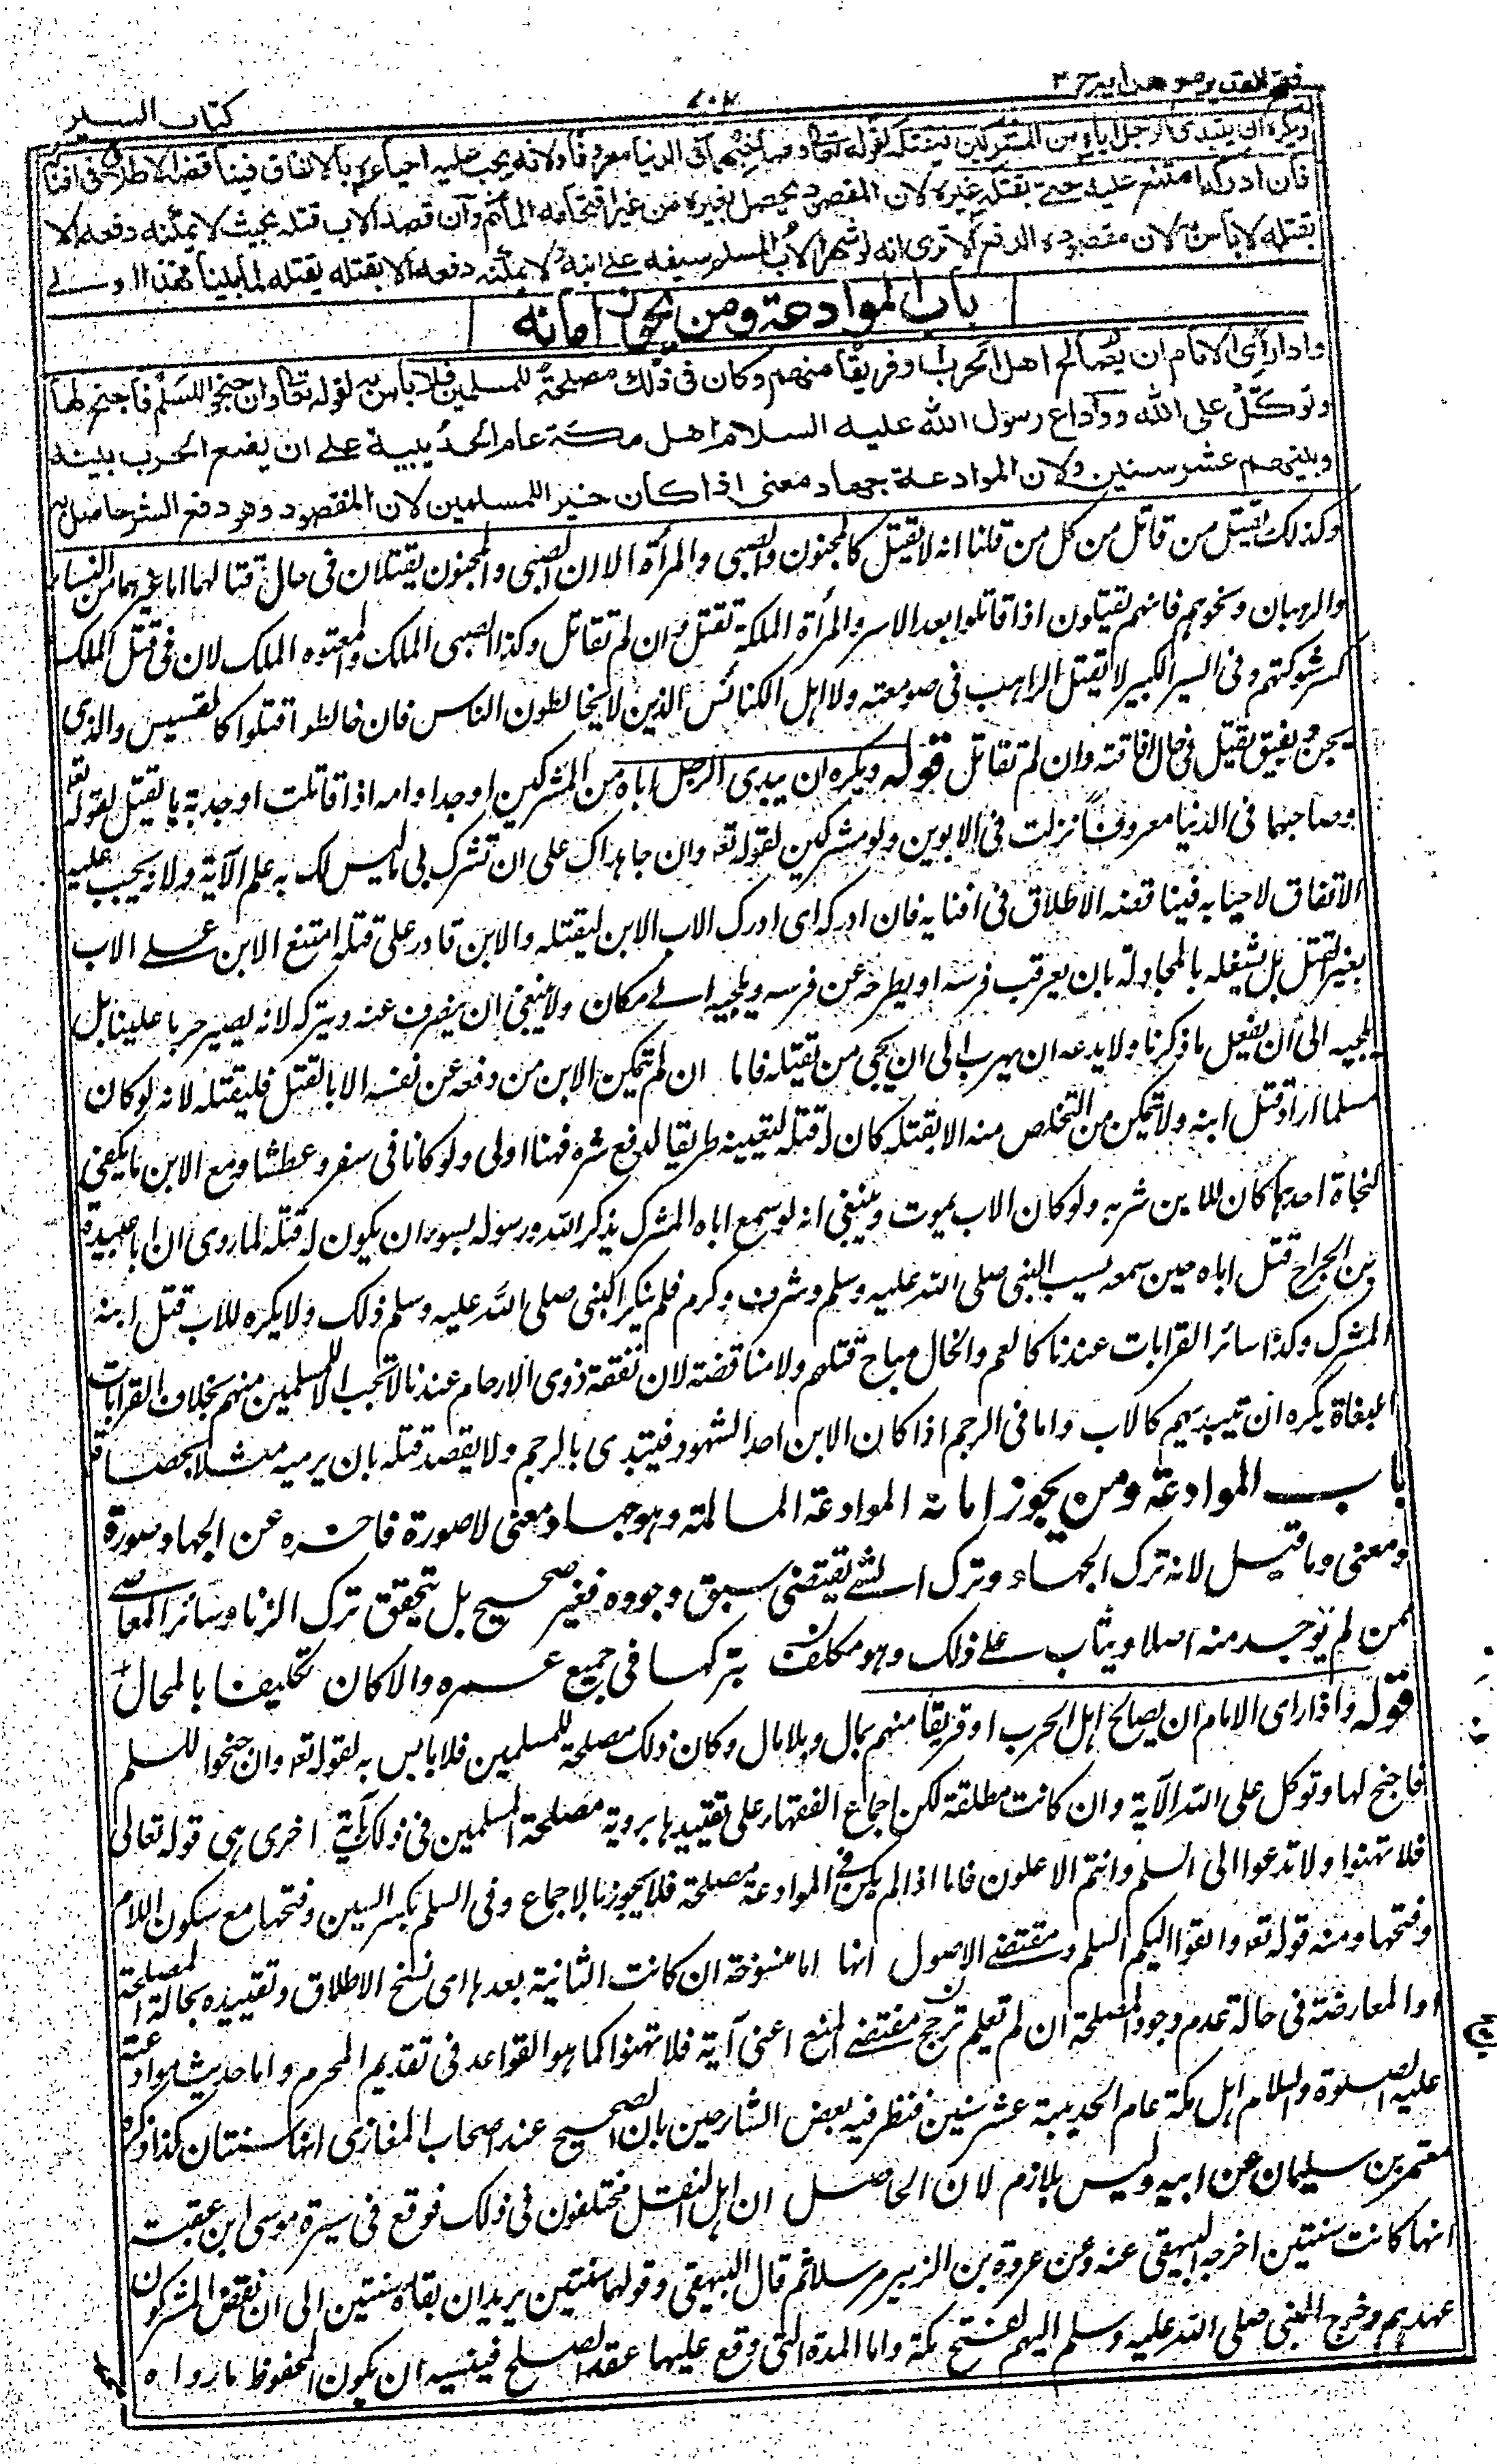 فتح القدير مع هداية ج ٢
٧٠٢
كتاب السير
ويكره ان يبتدئ الرجل اباه من المشركين فيقتله لقوله تعالى وصاحبهما في الدنيا معروفا ولانه يجب عليه احياءه بالانفاق فيناقضه الاطلاق في افنائه
فان ادركه امتنع عليه حتى يقتله غيره لان المقصود يحصل بغيره من غير اقتحامه المأثم وان قصد الاب قتله بحيث لا يمكنه دفعه الا
بقتله لا بأس به لان مقصوده الدفع الا ترى انه لو شهر الاب المسلم سيفه على ابنه ولا يمكنه دفعه الا بقتله يقتله لما بينا فهذا اولى
باب الموادعة ومن يجوز امانه
واذا رأى الامام ان يصالح اهل الحرب او فريقا منهم وكان في ذلك مصلحة للمسلمين فلا بأس به لقوله تعالى وان جنحوا للسلم فاجنح لها
وتوكل على الله ووادع رسول الله عليه السلام اهل مكة عام الحديبية على ان يضع الحرب بينه
وبينهم عشر سنين ولان الموادعة جهاد معنى اذا كان خيرا للمسلمين لان المقصود وهو دفع الشر حاصل به
وكذلك يقتل من قاتل من كل من قلنا انه لا يقتل كالمجنون والصبي والمرأة الا ان الصبي والمجنون يقتلان في حال قتالهما اما غيرهما من النساء
والرهبان ونحوهم فانهم يقتلون اذا قاتلوا بعد الاسر والمرأة الملكة تقتل وان لم تقاتل وكذا الصبي الملك والمعتوه الملك لان في قتل الملك
كسر شوكتهم وفي السير الكبير لا يقتل الراهب في صومعته ولا اهل الكنائس الذين لا يخالطون الناس فان خالطوا قتلوا كالقسيس والذي
يجن ويفيق يقتل في حال افاقته وان لم تقاتل قوله ويكره ان يبدى الرجل اباه من المشركين او جدا وامه اذا قاتلت او جدته يا يقتل لقوله تعه
وصاحبهما في الدنيا معروفا نزلت في الابوين ولو مشركين لقوله تعه وان جاهداك على ان تشرك بي ما ليس لك به علم الآية ولانه يجب عليه
الانفاق لاحيايه فيناقضه الاطلاق في افنايه فان ادركه اى ادرك الاب الابن ليقتله والابن قادر على قتله امتنع الابن على الاب
بغير القتل بل يشغله بالمجاولة بان يعرقب فرسه او يطرحه عن فرسه ويلجيه الى مكان ولا ينبغي ان ينصرف عنه ويتركه لانه يصير حربا علينا بل
يلجيه الى ان يفعل ما ذكرنا ولا يدعه ان يهرب الى ان يجي من يقتله فاما ان لم تمكين الابن من دفعه عن نفسه الا بالقتل فليقتله لانه لو كان
مسلما اراد قتل ابنه ولا تمكين من التخلص منه الا بقتله كان له قتله لتعيينه طريقا لدفع شره فهنا اولى ولو كانا في سفر وعطشا ومع الابن ما يكفي
لنجاة احدهما كان للابن شربه ولو كان الاب يموت وينبغي انه لو سمع اباه المشرك يذكر الله ورسوله بسوء ان يكون له قتله لما روى ان ابا عبيدة
بن الجراح قتل اباه حين سمعه يسب النبي صلى الله عليه وسلم وشرف وكرم فلم ينكر النبي صلى الله عليه وسلم ذلك ولا يكره للاب قتل ابنه
المشرك وكذا سائر القرابات عندنا كالعم والخال مباح قتلهم ولا مناقضة لان نفقة ذوي الارحام عندنا لا تجب الا للمسلمين منهم بخلاف القرابات
البغاة يكره ان يبتديهم كالاب واما في الرجم اذا كان الابن احد الشهود فيبتدى بالرجم ولا يقصد قتله بان يرميه مثلا بحصاة
باب الموادعة ومن يجوز امانه الموادعة المسالمة وهو جهاد معنى لا صورة فاخره عن الجهاد صورة
ومعنى وما قيل لانه ترك الجهاد وترك الشئ يقتضى سبق وجوده فغير صحيح بل يتحقق ترك الزنا وسائر المعاصى
ممن لم توجد منه اصلا ويثاب على ذلك وهو مكلف بتركها في جميع عمره والا كان تكليفا بالمحال
قوله واذا راى الامام ان يصالح اهل الحرب او فريقا منهم بمال وبلا مال وكان ذلك مصلحة للمسلمين فلا باس به لقوله تعه وان جنحوا للسلم
فاجنح لها وتوكل على الله الآية وان كانت مطلقة لكن اجماع الفقهاء على تقييدها بروية مصلحة المسلمين في ذلك بآية اخرى هى قوله تعالى
فلا تهنوا ولا تدعوا الى السلم وانتم الاعلون فاما اذا لم يكن في الموادعة مصلحة فلا يجوز بالاجماع وفي السلم بكسر السين وفتحها مع سكون اللام
وفتحها ومنه قوله تعه والقوا اليكم السلم ومقتضى الاصول انها اما منسوخة ان كانت الثانية بعدها اى نسخ الاطلاق وتقييده بحالة المصلحة
او المعارضة في حالة عدم وجود المصلحة ان لم تعلم ترجح مقتضى المنع اعنى آية فلا تهنوا كما هو القواعد في تقديم المحرم واما حديث موادعته
عليه الصلوة والسلام اهل مكة عام الحديبية عشر سنين فنظر فيه بعض الشارحين بان الصحيح عند اصحاب المغازى انها سنتان كذا ذكره
معتمر بن سليمان عن ابيه وليس بلازم لان الحاصل ان اهل النقل مختلفون في ذلك فوقع في سيرة موسى ابن عقبة
انها كانت سنتين اخرجه البيهقي عنه وعن عروة بن الزبير مرسلا ثم قال البيهقي وقولهما سنتين يريدان بقاه سنتين الى ان نقض المشركون
عهدهم وخرج النبي صلى الله عليه وسلم اليهم لفتح مكة واما المدة التي وقع عليها عقد الصلح فيشبه ان يكون المحفوظ ما رواه